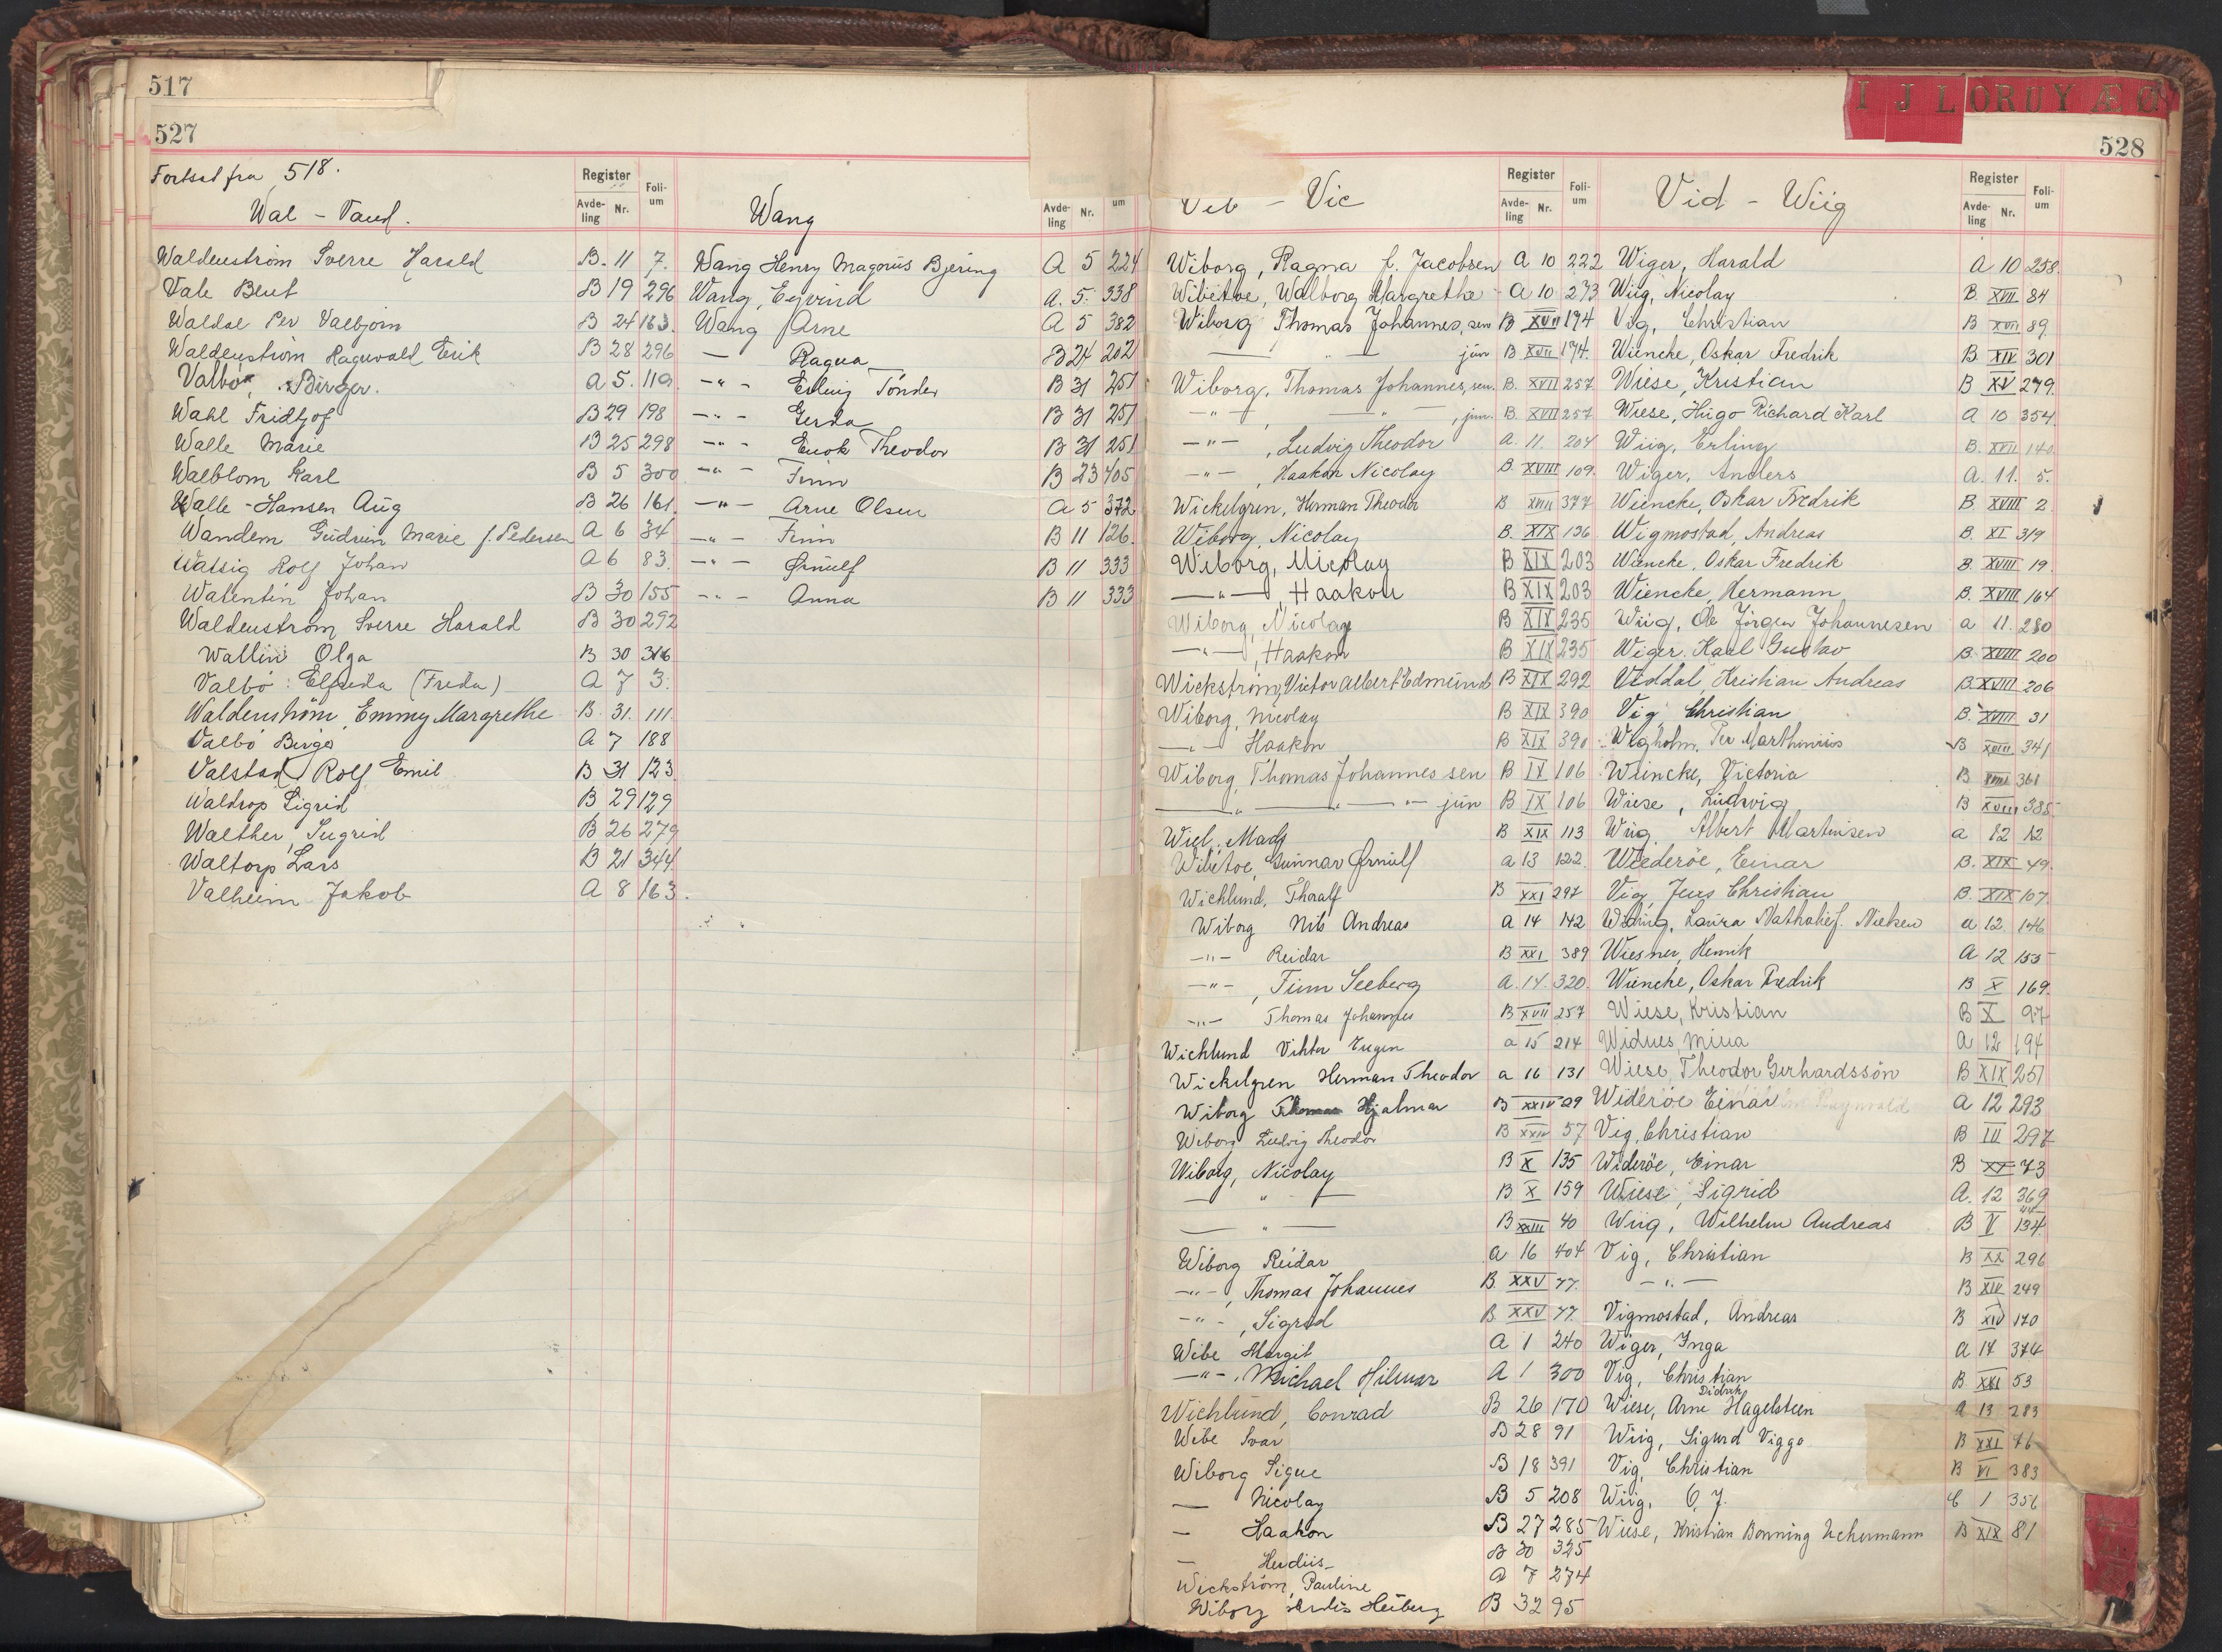 517
527
Fortsat fra 518.
Wal - Vand.
Register
Avdeling Nr. Folium
Waldenström Sverre Harald B. 11 7.
Vale Bent B 19 296
Waldal Per Valbjörn B 24 163.
Waldenström Ragnvald Erik B 28 296
Valbö, Birger. A 5. 119.
Wahl Fridtjof B 29 198
Walle Marie B 25 298
Walblom Karl B 5 300
Walle-Hansen Aug B 26 161.
Wandem Gudrun Marie f. Pedersen A 6 34
Rolf Johan A 6 83.
Walentin Johan B 30 155
Waldenström Sverre Harald B 30 292
Wallin Olga B 30 316
Valbö Elfrida (Freda) A 7 3.
Waldenström, Emmy Margrethe B. 31. 111.
Valbö Birger A 7 188
Valstad Rolf Emil B 31 123
Waldrop Sigrid B 29 129
Walther, Sugrid B 26 279
Waltorp Lars B 21 344
Valheim Jakob A 8 163.
Wang
Avdeling Nr. um
Wang Henry Magnus Bjering A 5 224
Wang, Eyvind A. 5. 338
Wang Arne A 5 382
— Ragna B 24 202
-"- Erling Tönder B 31 251
-"- Gerda B 31 251
-"- Enok Theodor B 31 251
-"- Finn B 23 405
-"- Arne Olsen A 5 372
-"- Finn B 11 126.
-"- Ørnulf B 11 333
-"- Anna B 11 333
I J L O R U Y Æ Ø
528
- Vic
Register
Avdeling Nr. Folium
Wiborg, Ragna f. Jacobsen A 10 222
Wibetoe, Walborg Margrethe A 10 273
Wiborg Thomas Johannes, sen B XVII 174
— " — jun B XVII 174.
Wiborg, Thomas Johannes, sen. B. XVII 257.
-"- — " —, jun. B. XVII 257
-"-, Ludvig Theodor A. 11. 204
-"-, Haakon Nicolay B. XVIII 109.
Wickelgren, Herman Theodor B XVIII 377
Wiborg, Nicolay B. XIX 136
Wiborg, Nicolay B XIX 203
—"—, Haakon B XIX 203
Wiborg, Nicolay B XIX 235
—"—, Haakon B XIX 235
Wickström, Victor Albert Edmund B XIX 292
Wiborg, Nicolay B XIX 390
—"— Haakon B XIX 390
Wiborg, Thomas Johannes sen B IX 106
—"— —"— —"— jun B IX 106
Wiel, Mads B XIX 113
Wibetoe, Gunnar Ørnulf A 13 122.
Wichlund, Thoralf B XXI 297
Wiborg Nils Andreas A 14 142
-"- Reidar B XXI 389
-"-, Finn Seeberg A. 14. 320.
-"- Thomas Johannes B XVII 257
Wichlund Viktor Eugen A 15 214
Wickelgren Herman Theodor A 16 131
Wiborg Thomas Hjalmar B XXIV 29
Wiborg Ludvig Theodor B XXIV 57
Wiborg, Nicolay B X 135
— " — B X 159
— " — B XXIII 40
Wiborg Reidar A 16 404
-"-, Thomas Johannes B XXV 77.
-"-, Sigrid B XXV 77.
Wibe Margit A 1 240
-"-, Michael Hilmar A 1 300
Wichlund, Conrad B 26 170
Wibe Ivar B 28 91
Wiborg Signe B 18 391
— Nicolay B 5 208
— Haakon B 27 285
— Herdis B 30 325
Wickström, Pauline A 7 274
Wiborg Heiberg B 32 95
Vid - Wiig
Register
Avdeling Nr. Folium
Wiger, Harald A 10 258.
Wiig, Nicolay B. XVII 84
Vig, Christian B XVII 89
Wiencke, Oskar Fredrik B. XIV 301
Wiese, Kristian B XV 279.
Wiese, Hugo Richard Karl A 10 354.
Wiig, Erling B. XVII 140.
Wiger, Anders A. 11. 5.
Wiencke, Oskar Fredrik B. XVIII 2
Wigmostad, Andreas B. XI 319
Wiencke, Oskar Fredrik B. XVIII 19.
Wiencke, Hermann B. XVIII 164
Wiig, Ole Jörgen Johannesen A 11. 280
Wiger, Karl Gustav B. XVIII 200
Viddal, Kristian Andreas B. XVIII 206
Vig, Christian B. XVIII 31
Wigholm, Per Marthinius B XVIII 341
Wiencke, Victoria B XVIII 361
Wiese, Ludvig B XVIII 385
Wiig Albert Martinsen A 12 12
Wiederöe, Einar B. XIX 49.
Vig, Jens Christian B. XIX 107.
Widing, Laura Nathalie f. Nielsen A 12. 146
Wiesner, Henrik A 12 155
Wiencke, Oskar Fredrik B X 169.
Wiese, Kristian B X 97
Widnes, Mina A 12 194
Wiese, Theodor Gerhardssön B XIX 251
Wideröe Einar A 12 293
Vig, Christian B III 297
Wideröe, Einar B XX 73
Wiese, Sigrid A. 12 369
Wiig, Wilhelm Andreas B V 134.
Vig, Christian B XX 296
—"— B XIV 249
Vigmostad, Andreas B XIV 170
Wiger, Inga A 14 374
Vig, Christian B XXI 53
Wiese, Arne Didrik Hagelsteen A 13 283
Wiig, Sigurd Viggo B XXI 76
Vig, Christian B VI 383
Wiig, O. J. C 1 356
Wiese, Kristian Bonning Uchermann B XIX 81